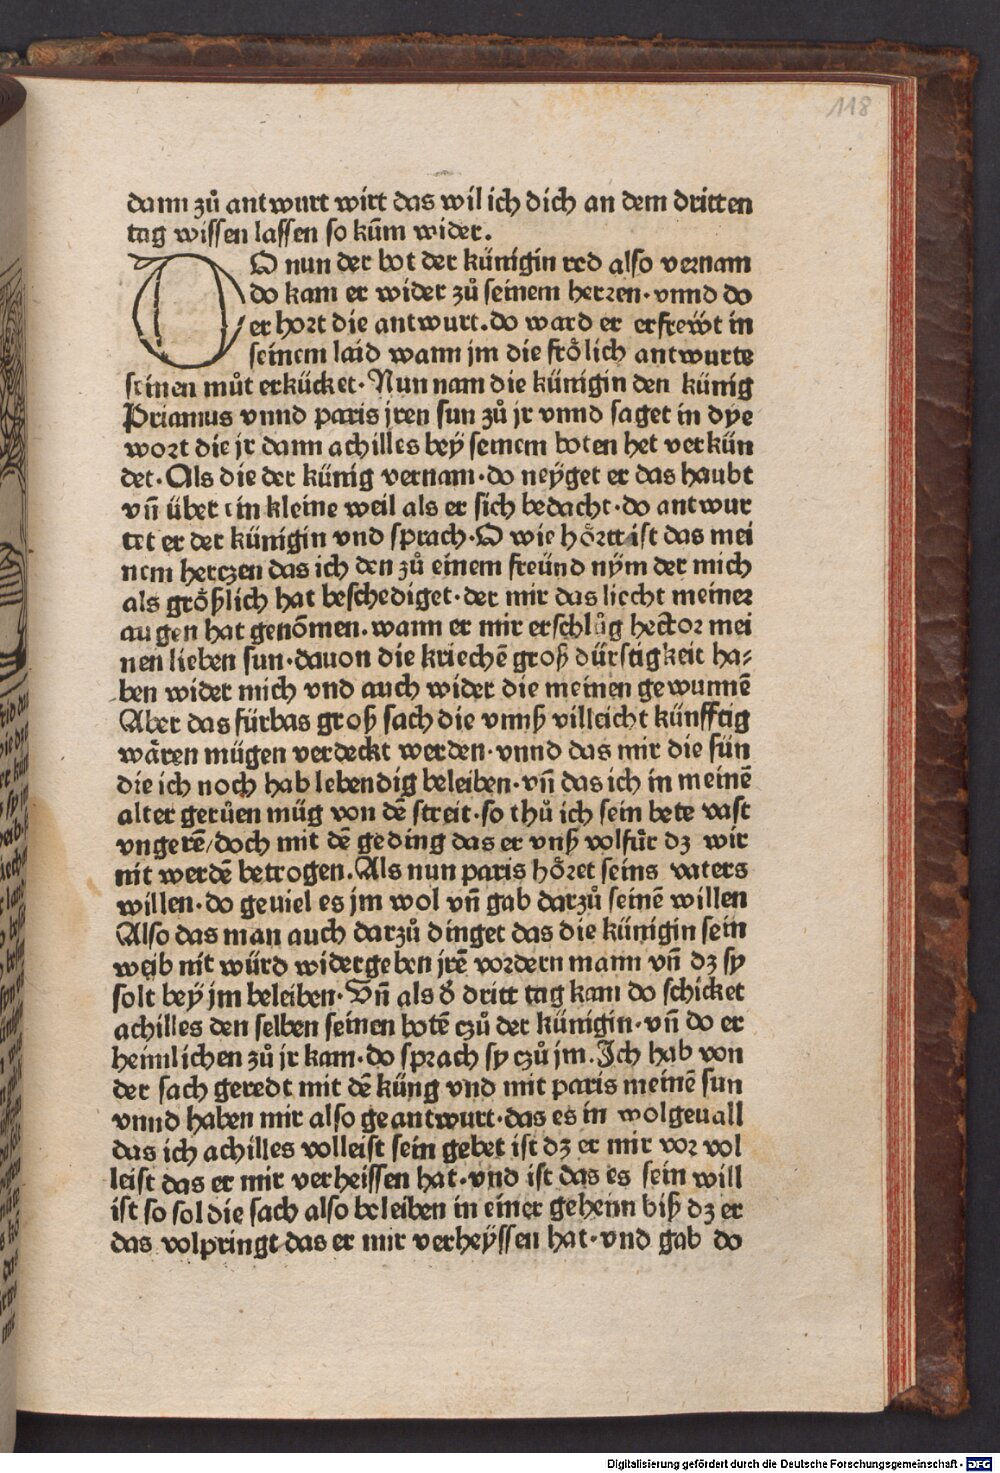 118
dann zuͦ antwurt wirt das wil ich dich an dem dritten
tag wissen lassen so kūm wider.
DO nun der bot der künigin red also vernam
do kam er wider zuͦ seinem herren· vnnd do
er hort die antwurt. do ward er erfreẅt in
seinem laid wann jm die froͤlich antwurte
seinen muͦt erkücket· Nun nam die künigin den künig
Priamus vnnd paris jren sun zuͦ jr vnnd saget in dye
wort die jr dann achilles beÿ seinem boten het verkün
det· Als die der künig vernam· do neÿget er das haubt
vñ über ein kleine weil als er sich bedacht· do antwur
tet er der künigin vnd sprach· O wie hoͤrtt ist das mei
nem herczen das ich den zuͦ einem freünd nÿm der mich
als groͤßlich hat beschediget· der mir das liecht meiner
augen hat genōmen. wann er mir erschluͦg hector mei
nen lieben sun· dauon die kriechē groß dürstigkeit ha⸗
ben wider mich vnd auch wider die meinen gewunnē
Aber das fürbas groß sach die vnnß villeicht künfftig
waͤren mügen verdeckt werden· vnnd das mir die sün
die ich noch hab lebendig beleiben· vñ das ich in meinē
alter geruͤen müg von dē streit· so thuͦ ich sein bete vast
vngerē/ doch mit dē geding das er vnß volfuͤr dz wir
nit werdē betrogen. Als nun paris hoͤret seins vaters
willen· do geuiel es jm wol vñ gab darzuͦ seinē willen
Also das man auch darzuͦ dinget das die künigin sein
weib nit würd widergeben jrē vordern mann vñ dz sy
solt beÿ jm beleiben· Vñ als d̛ dritt tag kam do schicket
achilles den selben seinen botē czuͦ der künigin· vñ do er
heimlichen zuͦ jr kam· do sprach sy czuͦ jm. Ich hab von
der sach geredt mit dē küng vnd mit paris meinē sun
vnnd haben mir also geantwurt· das es in wolgeuall
das ich achilles volleist sein gebet ist dz er mir vor vol
leist das er mir verheissen hat· vnd ist das es sein will
ist so sol die sach also beleiben in einer geheim biß dz er
das volpringt das er mir verheÿssen hat· vnd gab do
Digitalisierung gefördert durch die Deutsche Forschungsgemeinschaft - DFG